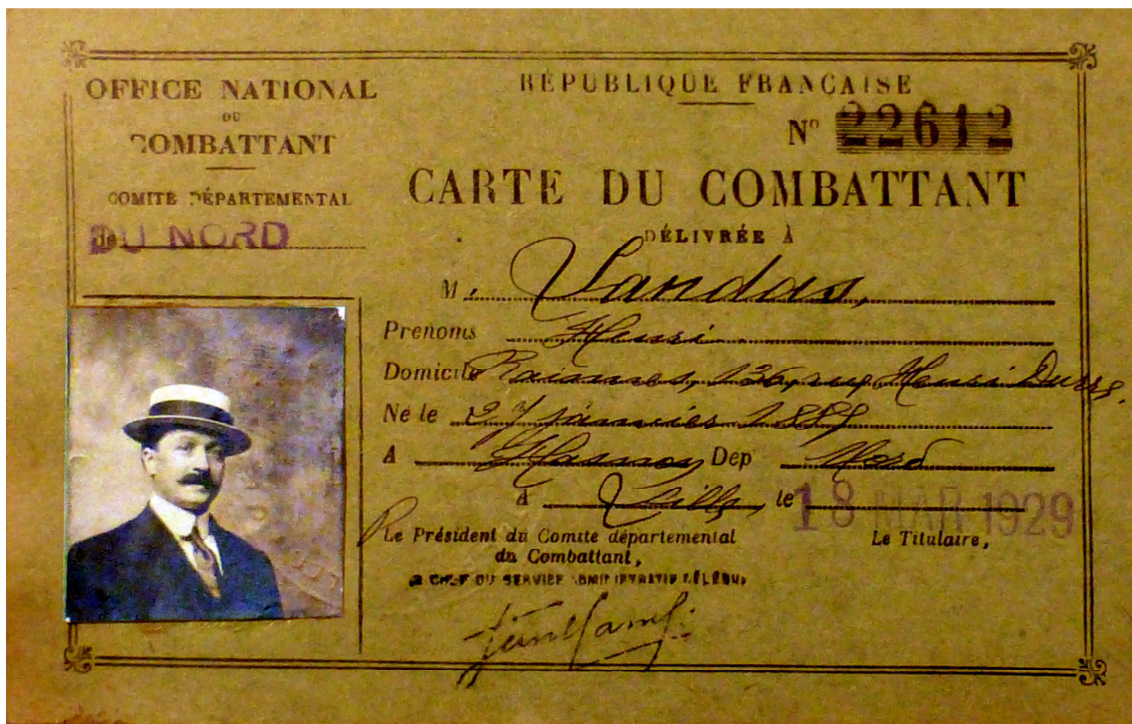 OFFICE NATIONAL
DU
COMBATTANT
COMITÉ DÉPARTEMENTAL
DU NORD
RÉPUBLIQUE FRANÇAISE
N° 22612
CARTE DU COMBATTANT
DÉLIVRÉE À
M. Landas,
Prénoms Henri
Domicile Raismes, 136, rue Henri Durre,
Né le 27 janvier 1889
A Hasnon Dep Nord
A Lille, le 18 MAR 1929
Le Président du Comité départemental
du Combattant,
Le Titulaire,
LE CHEF DU SERVICE ADMINISTRATIF DÉLÉGUÉ